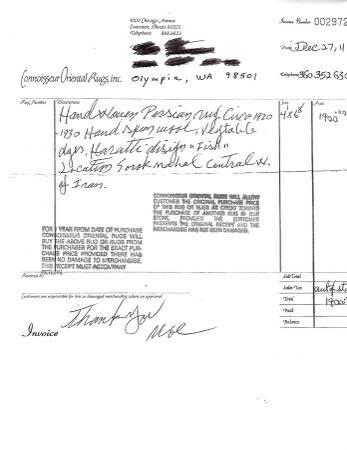 4000 Chicago Avenue
Evanston, Illinois 60202
Telephone
Invoice Number 002972
Date Dec 27, 11
Connoisseur Oriental Rugs, inc. Olympia, WA 98501
Telephone 360 352 630
Rug Number Description Size Area
Hand woven Persian rug Circa 1920 4x6
-1930 Hand spun wool, Vegtable
dyes. Haratti disign "Fish"
Location Central W.
of Iran.
CONNOISSEUR ORIENTAL RUGS WILL ALLOW
CUSTOMER THE ORIGINAL PURCHASE PRICE
OF THIS RUG OR RUGS AS CREDIT TOWARDS
THE PURCHASE OF ANOTHER RUG IN OUR
STORE, PROVIDED THE CUSTOMER
PRESENTS THE ORIGINAL RECEIPT AND THE
MERCHANDISE HAS NOT BEEN DAMAGED.
FOR 1 YEAR FROM DATE OF PURCHASE
CONNOISSEUR ORIENTAL RUGS WILL
BUY THE ABOVE RUG OR RUGS FROM
THE PURCHASER FOR THE EXACT PUR-
CHASE PRICE PROVIDED THERE HAS
BEEN NO DAMAGE TO MERCHANDISE.
THIS RECEIPT MUST ACCOMPANY
RETURN.
Received by
Customers are responsible for lost or damaged merchandise taken on approval
Sub Total
Sales Tax
Total 1900
Paid
Balance
Invoice
Thank You
Moe